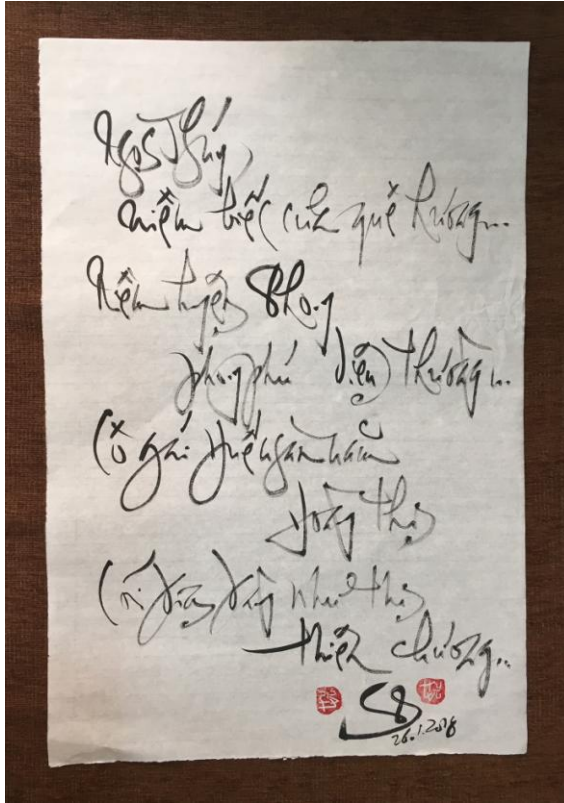 Ngọc Thúy,
niềm biếc của quê hương...
Niềm huyền
phong phú diệu thường...
Cô gái Huế ngàn năm
Hoàng Thị
như thị
thiên chương...
26.1.2018